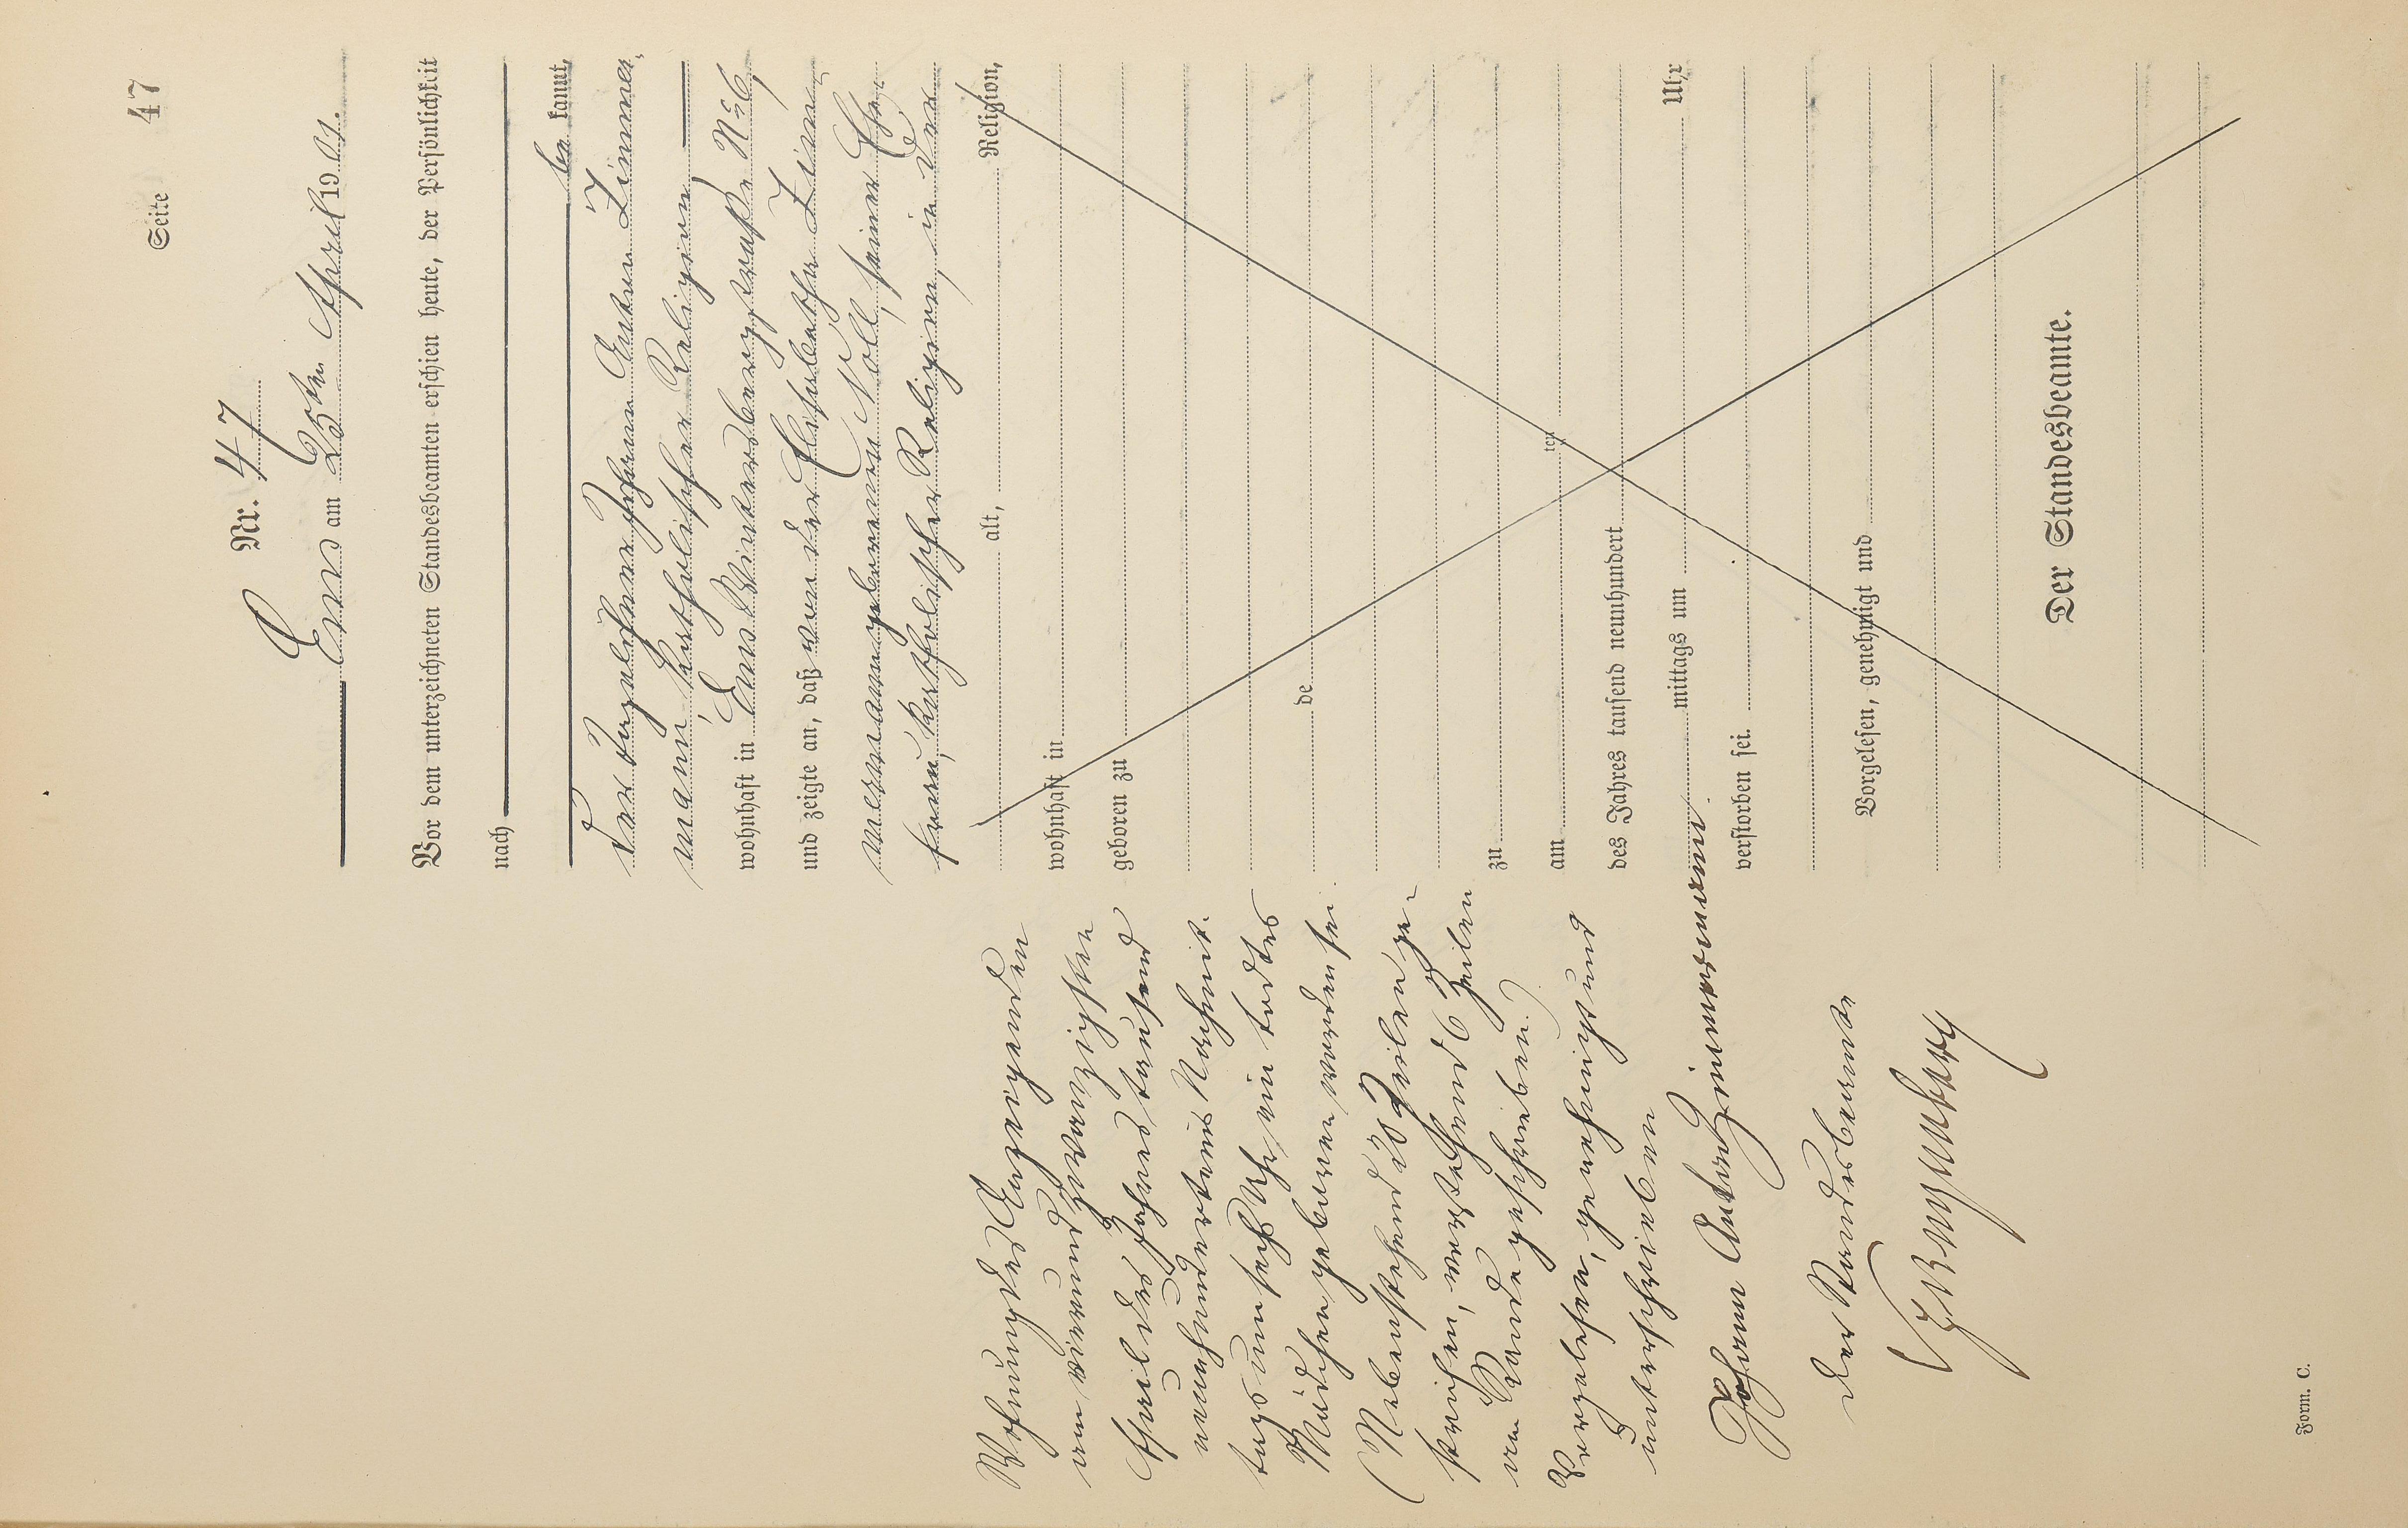 Seite 47
Nr. 47
Ems am 25ten April 1901.
Vor dem unterzeichneten Standesbeamten erschien heute, der Persönlichkeit
nach
be kannt,
der Taglöhner Johann Anton Zimmer-
mann, katholischer Religion,
wohnhaft in Ems Wintersbergstraße No 6,
und zeigte an, daß von der Elisabetha Zim-
mermann geborenen Noll, seiner Ehe-
frau, katholischer Religion, in der
alt, Religion,
wohnhaft in
geboren zu
de
zu
am ten
des Jahres tausend neunhundert
mittags um Uhr
verstorben sei.
Vorgelesen, genehmigt und
Der Standesbeamte.
Wohnung des Anzeigenden
am vierundzwanzigsten
April des Jahres tausend
neunhundert eins Nachmit-
tags um sechs Uhr ein todtes
Mädchen geboren worden sei.
(Nebenstehend Zeilen ge-
strichen, vorstehend 6 Zeilen
am Rande geschrieben.)
Vorgelesen, genehmigt und
unterschrieben
Johann Anton Zimmermann.
Der Standesbeamte
Form. C.